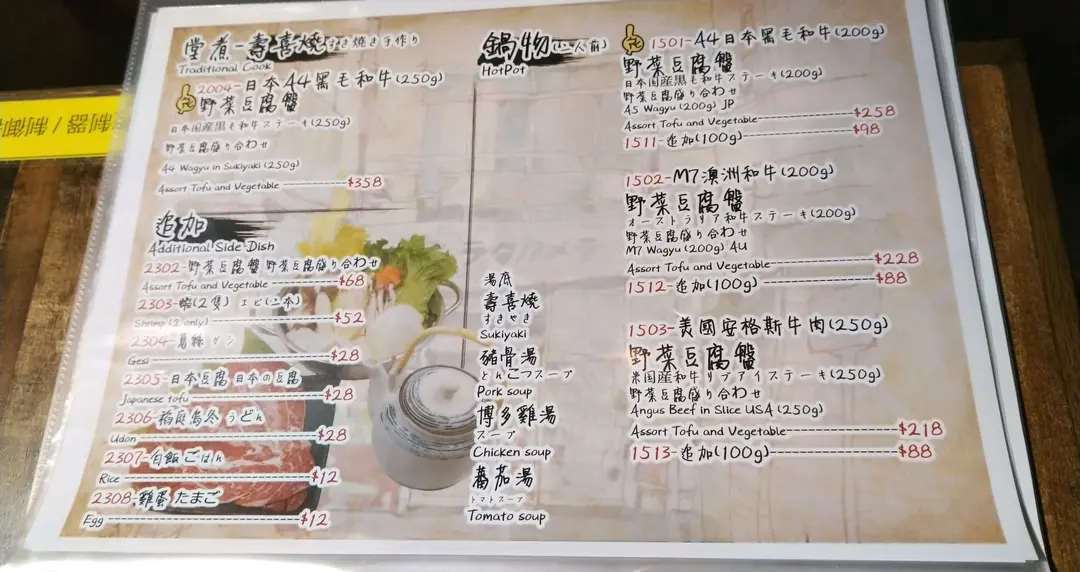 堂煮-壽喜燒すき燒き手作り
Traditional Cook
2004-日本A4黑毛和牛(250g)
野菜豆腐盤
日本国産黒毛和牛ステーキ(250g)
野菜豆腐盛り合わせ
A4 Wagyu in Sukiyaki (250g)
Assort Tofu and Vegetable $358
追加
Additional Side Dish
2302-野菜豆腐盤 野菜豆腐盛り合わせ
Assort Tofu and Vegetable $68
2303-蝦(2隻) エビ(二本)
Shrimp (2 only) $52
2304-葛絲 グシ
Gesi $28
2305-日本豆腐 日本の豆腐
Japanese tofu $28
2306-稻庭烏冬 うどん
Udon $28
2307-白飯 ごはん
Rice $12
2308-雞蛋 たまご
Egg $12
鍋物(二人前)
HotPot
湯底
壽喜燒
すきやき
Sukiyaki
豬骨湯
とんこつスープ
Pork soup
博多雞湯
スープ
Chicken soup
蕃茄湯
トマトスープ
Tomato soup
1501-A4日本黑毛和牛(200g)
野菜豆腐盤
日本国産黒毛和牛ステーキ(200g)
野菜豆腐盛り合わせ
A5 Wagyu (200g) JP
Assort Tofu and Vegetable $258
1511-追加(100g) $98
1502-M7澳洲和牛(200g)
野菜豆腐盤
オーストラリア和牛ステーキ(200g)
野菜豆腐盛り合わせ
M7 Wagyu (200g) AU
Assort Tofu and Vegetable $228
1512-追加(100g) $88
1503-美國安格斯牛肉(250g)
野菜豆腐盤
米国産和牛リブアイステーキ(250g)
野菜豆腐盛り合わせ
Angus Beef in Slice USA (250g)
Assort Tofu and Vegetable $218
1513-追加(100g) $88